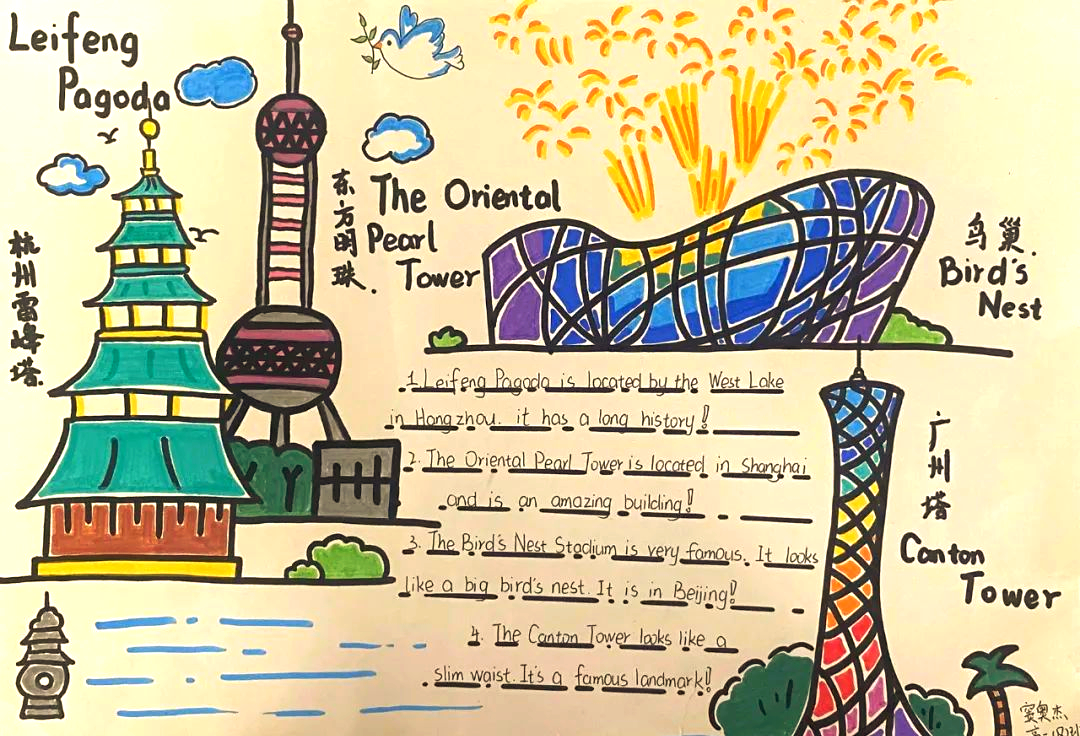 Leifeng
Pagoda
杭州雷峰塔
东方明珠.
The Oriental
Pearl
Tower
鸟巢.
Bird's
Nest
1.Leifeng Pagoda is located by the West Lake
in Hangzhou. it has a long history!
2. The Oriental Pearl Tower is located in Shanghai
and is an amazing building!
3. The Bird's Nest Stadium is very famous. It looks
like a big bird's nest. It is in Beijing!
4. The Canton Tower looks like a
slim waist. It's a famous landmark!
广州塔
Canton
Tower
奥杰